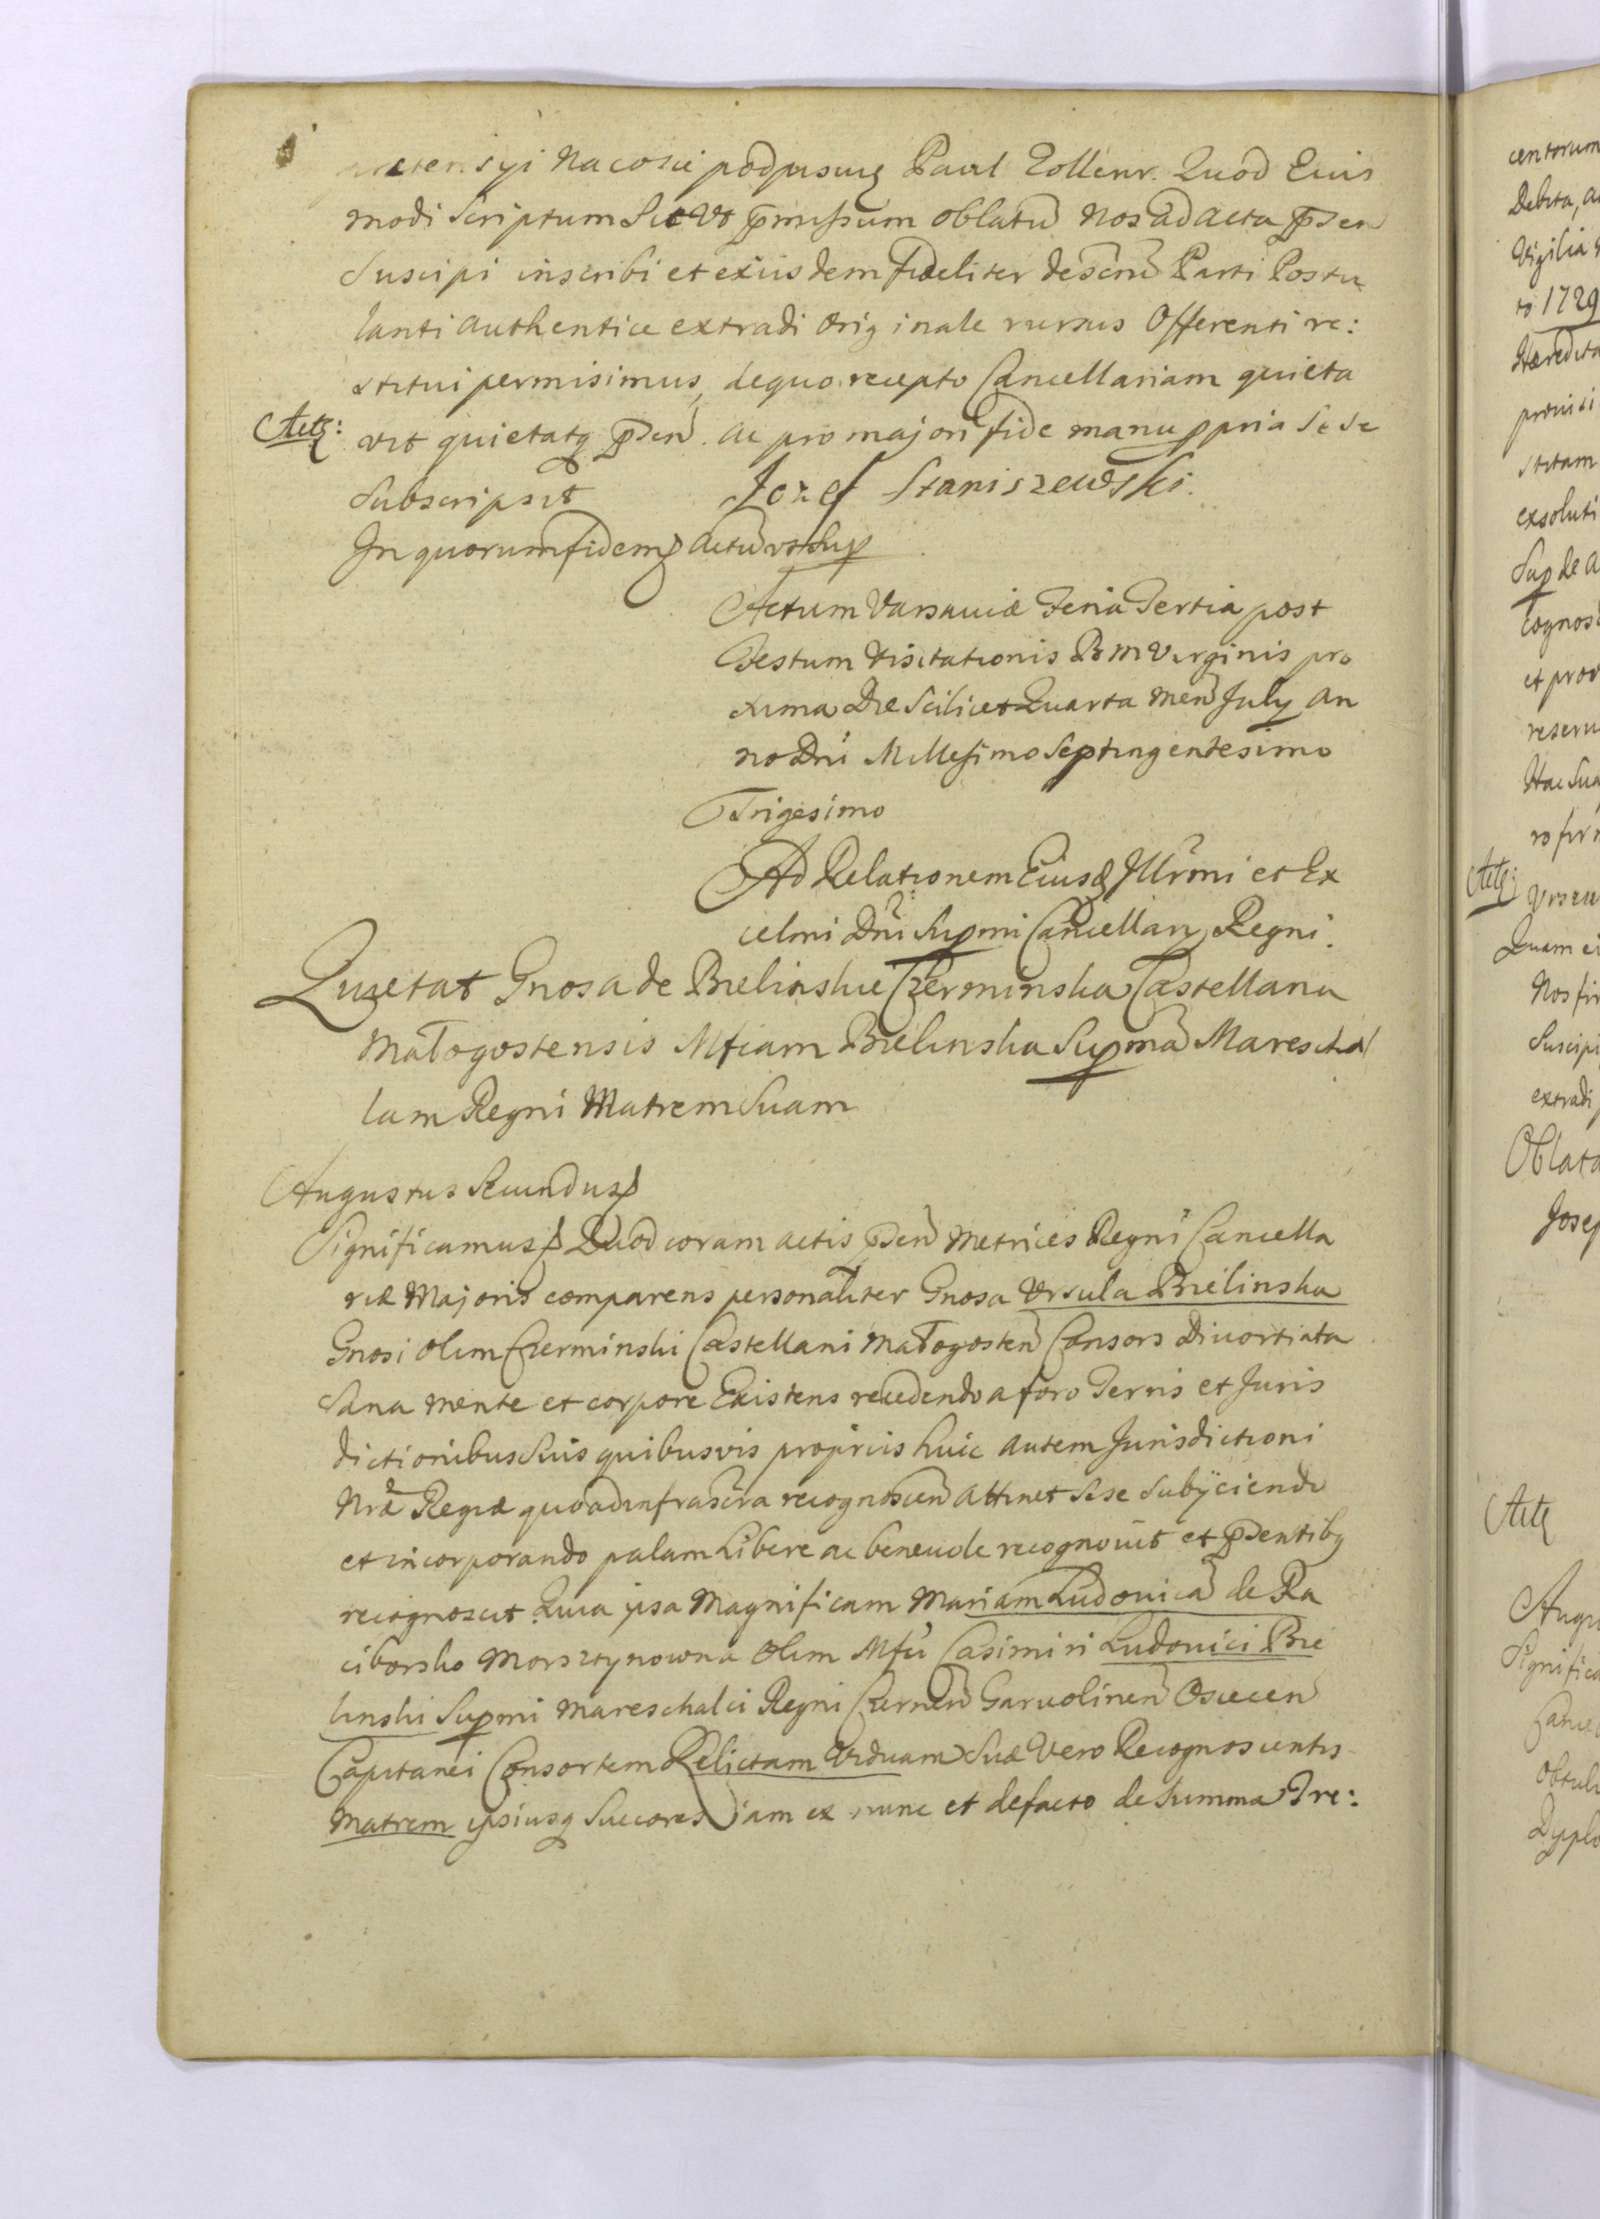 pretensyi na co sie podpisuię Paul Zollenr. Quod Eius
modi Scriptum Sic Vt pmissum oblatu nos ad acta psen
Suscipi inscribi et ex iisdem fideliter descrni Parti Postu
lanti authentice extradi originale rursus Offerenti re:
stitui permisimus, de quo recepto Cancellariam quieta
Actę: vit quietatq psen. ac pro majori fide manu ppria Se se
Subscripsit Jozef Staniszewski.
In quorum fidem Actu vt Sup
Actum Varsaviæ Feria Tertia post
Festum Visitationis B M Virginis pro
xima Die Scilicet Quarta men July An
no Dni Millesimo Septingentesimo
Trigesimo
Ad Relationem Eiusd Illrmi et Ex
celmi Dni Supmi Cancellarij Regni.
Quietat Gnosa de Bielinskie Czerminska Castellana
Małogostensis Mficam Bielinska Supma Mareschal
lam Regni Matrem Suam
Augustus Secundus
Significamus Quod coram actis psen Metrices Regni Cancella
riæ Majoris comparens personaliter Gnosa Ursula Bielinska
Gnosi olim Czerminski Castellani Małogosten Consors Divortiata
Sana mente et corpore Existens recedendo a foro Terris et Juris
dictionibus Suis quibusvis propriis huic autem Jurisdictioni
Nræ Regiæ quoad infrascra recognoscen attinet Se se Subijciendo
et incorporando palam Libere ac benevole recognovit et psentibq
recognoscit Quia ipsa Magnificam Mariam Ludovica de Ra
ciborsko Morsztynowna olim Mfci Casimiri Ludovici Bie
linski Supmi Mareschalci Regni Czernen Garvolinen Osiecen
Capitanei Consortem Relictam Viduam Suæ Vero Recognoscentis
Matrem ipsiusq Succores jam ex nunc et de facto de Summa Tre: